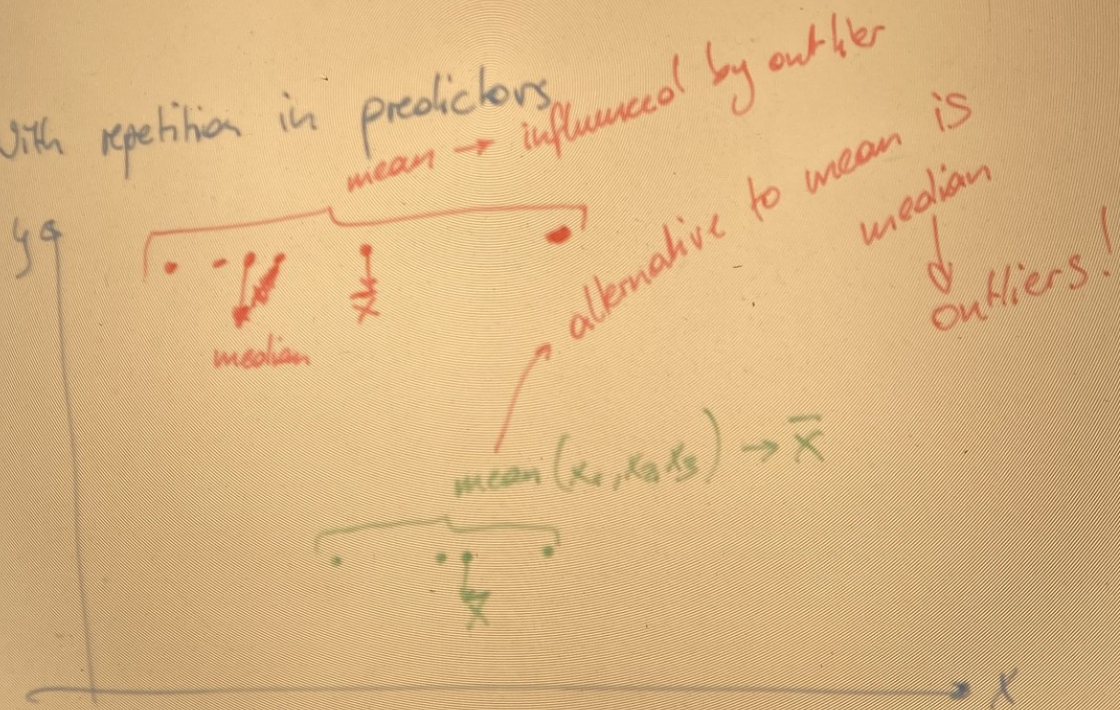 With repetition in predictors
mean → influenced by outlier
y
alternative to mean is
median
outliers!
x̄
median
mean (x₁, x₂, x₃) → x̄
x̄
x